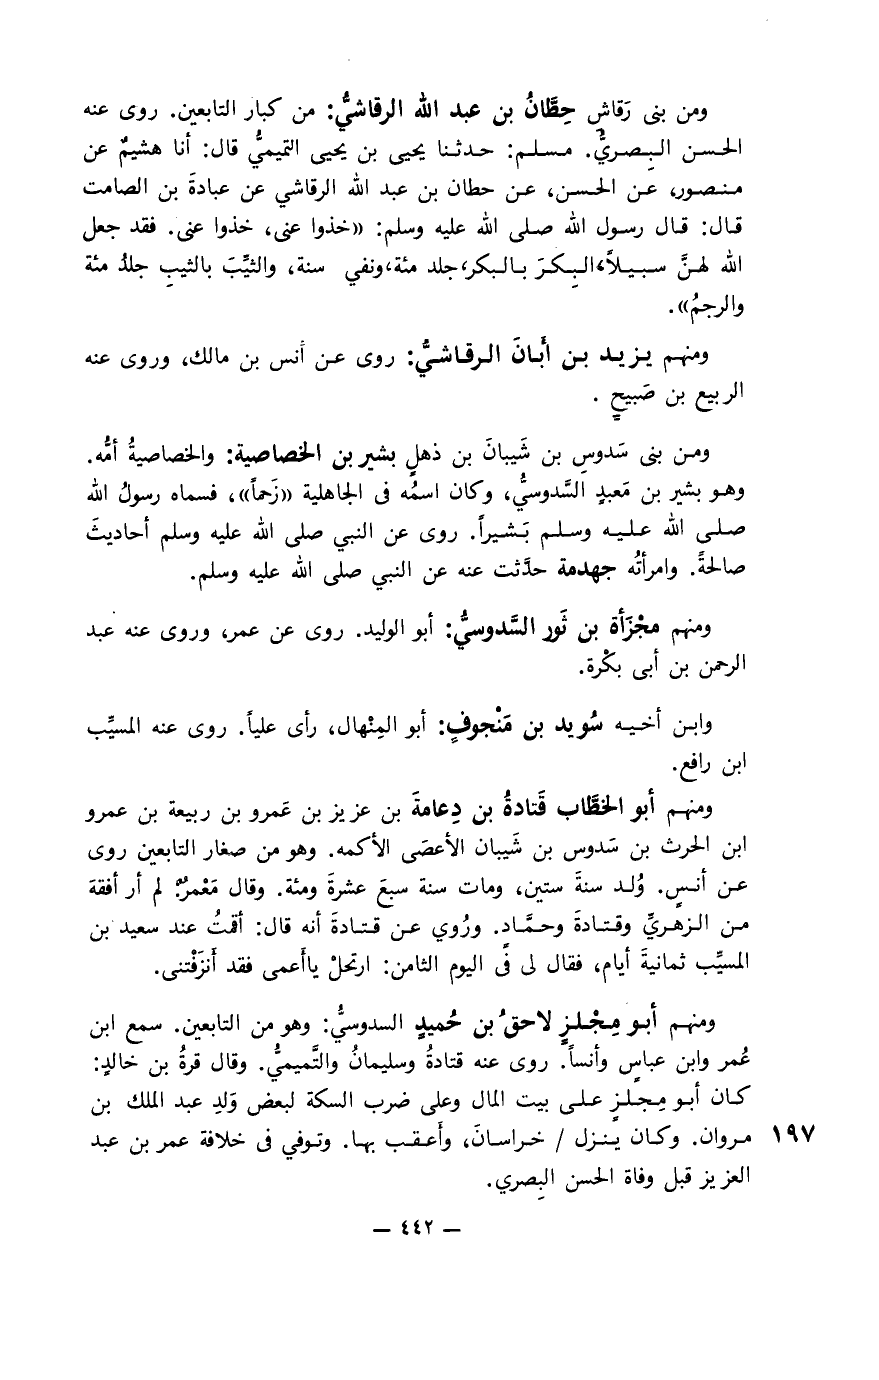 ومن بنى رَقاشِ حِطَّانُ بن عبد الله الرقاشيُّ: من كبار التابعين. روى عنه
الحسن البِصريُّ. مسلم: حدثنا يحيى بن يحيى التميميُّ قال: أنا هشيمٌ عن
منصور، عن الحسن، عن حطان بن عبد الله الرقاشي عن عبادةَ بن الصامت
قال: قال رسول الله صلى الله عليه وسلم: «خذوا عنى، خذوا عنى. فقد جعل
الله لهنَّ سبيلاً، البِكرَ بالبكر، جلد مئة، ونفي سنة، والثيَّبَ بالثيبِ جلدُ مئة
والرجمُ».
ومنهم يزيد بن أبَانَ الرقاشيُّ: روى عن أنس بن مالك، وروى عنه
الربيع بن صَبيحٍ .
ومن بنى سَدوسِ بن شَيبانَ بن ذهلٍ بشير بن الخصاصية: والخصاصيةُ أمُّه.
وهو بشير بن مَعبدٍ السَّدوسيُّ، وكان اسمُه فى الجاهلية «زَحماً»، فسماه رسولُ الله
صلى الله عليه وسلم بَشيراً. روى عن النبي صلى الله عليه وسلم أحاديثَ
صالحةً. وامرأتُه جهدمة حدَّثت عنه عن النبي صلى الله عليه وسلم.
ومنهم مجْزَأة بن ثَور السَّدوسيُّ: أبو الوليد. روى عن عمر، وروى عنه عبد
الرحمن بن أبى بكْرة.
وابن أخيه سُويد بن مَنْجوفٍ: أبو المِنْهال، رأى علياً. روى عنه المسيَّب
ابن رافع.
ومنهم أبو الخطَّاب قَتادةُ بن دِعامةَ بن عزيز بن عَمرو بن ربيعة بن عمرو
ابن الحرث بن سَدوس بن شَيبان الأعمَى الأكمه. وهو من صغار التابعين روى
عن أنسٍ. وُلد سنةَ ستين، ومات سنة سبعَ عشرةَ ومئة. وقال مَعْمرٌ: لم أر أفقهَ
من الزهريِّ وقتادةَ وحمَّادٍ. ورُوي عن قتادةَ أنه قال: أقمتُ عند سعيد بن
المسيِّب ثمانيةَ أيام، فقال لى فى اليوم الثامن: ارتحلْ ياأَعمى فقد أنزَفْتنى.
ومنهم أبو مِجْلزٍ لاحقُ بن حُميدٍ السدوسيُّ: وهو من التابعين. سمع ابن
عُمر وابن عباسٍ وأنساً. روى عنه قتادةُ وسليمانُ والتَّميميُّ. وقال قرةُ بن خالدٍ:
كان أبو مِجلزٍ على بيت المال وعلى ضرب السكة لبعض وَلدِ عبد الملك بن
١٩٧ مروان. وكان ينزل / خراسانَ، وأَعقب بها. وتوفي فى خلافة عمر بن عبد
العزيز قبل وفاة الحسن البِصري.
— ٤٤٢ —